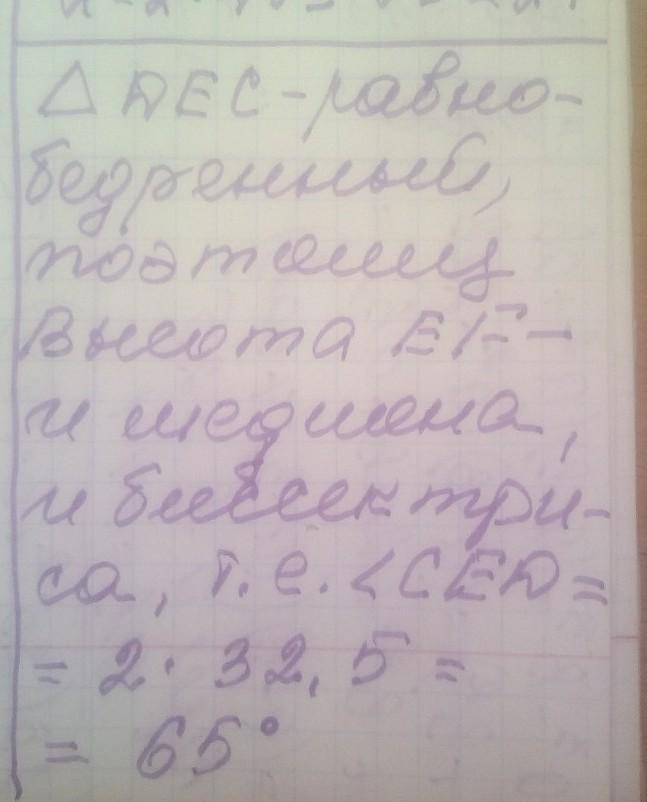 △ DEC - равно-
бедренный,
поэтому
высота EF -
и медиана,
и биссектри-
са, т.е. <CED =
= 2 · 32,5 =
= 65°